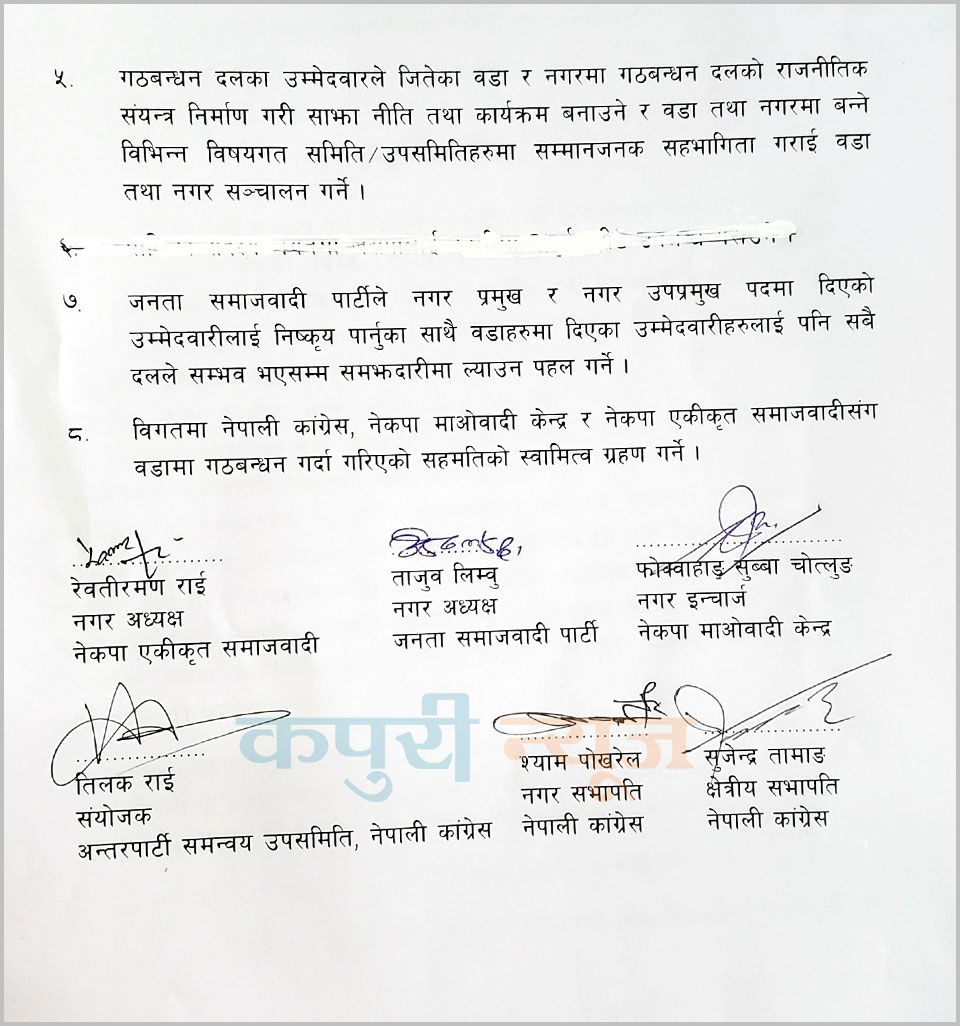 ५. गठबन्धन दलका उम्मेदवारले जितेका वडा र नगरमा गठबन्धन दलको राजनीतिक
संयन्त्र निर्माण गरी साझा नीति तथा कार्यक्रम बनाउने र वडा तथा नगरमा बन्ने
विभिन्न विषयगत समिति/उपसमितिहरुमा सम्मानजनक सहभागिता गराई वडा
तथा नगर सञ्चालन गर्ने ।
७. जनता समाजवादी पार्टीले नगर प्रमुख र नगर उपप्रमुख पदमा दिएको
उम्मेदवारीलाई निष्कृय पार्नुका साथै वडाहरुमा दिएका उम्मेदवारीहरुलाई पनि सबै
दलले सम्भव भएसम्म समझदारीमा ल्याउन पहल गर्ने ।
८. विगतमा नेपाली कांग्रेस, नेकपा माओवादी केन्द्र र नेकपा एकीकृत समाजवादीसंग
वडामा गठबन्धन गर्दा गरिएको सहमतिको स्वामित्व ग्रहण गर्ने ।
रेवतीरमण राई
नगर अध्यक्ष
नेकपा एकीकृत समाजवादी
ताजुव लिम्वु
नगर अध्यक्ष
जनता समाजवादी पार्टी
फोक्वाहाङ सुब्बा चोत्लुङ
नगर इन्चार्ज
नेकपा माओवादी केन्द्र
तिलक राई
संयोजक
अन्तरपार्टी समन्वय उपसमिति, नेपाली कांग्रेस
श्याम पोखरेल
नगर सभापति
नेपाली कांग्रेस
सुजेन्द्र तामाङ
क्षेत्रीय सभापति
नेपाली कांग्रेस
कपुरी न्यूज